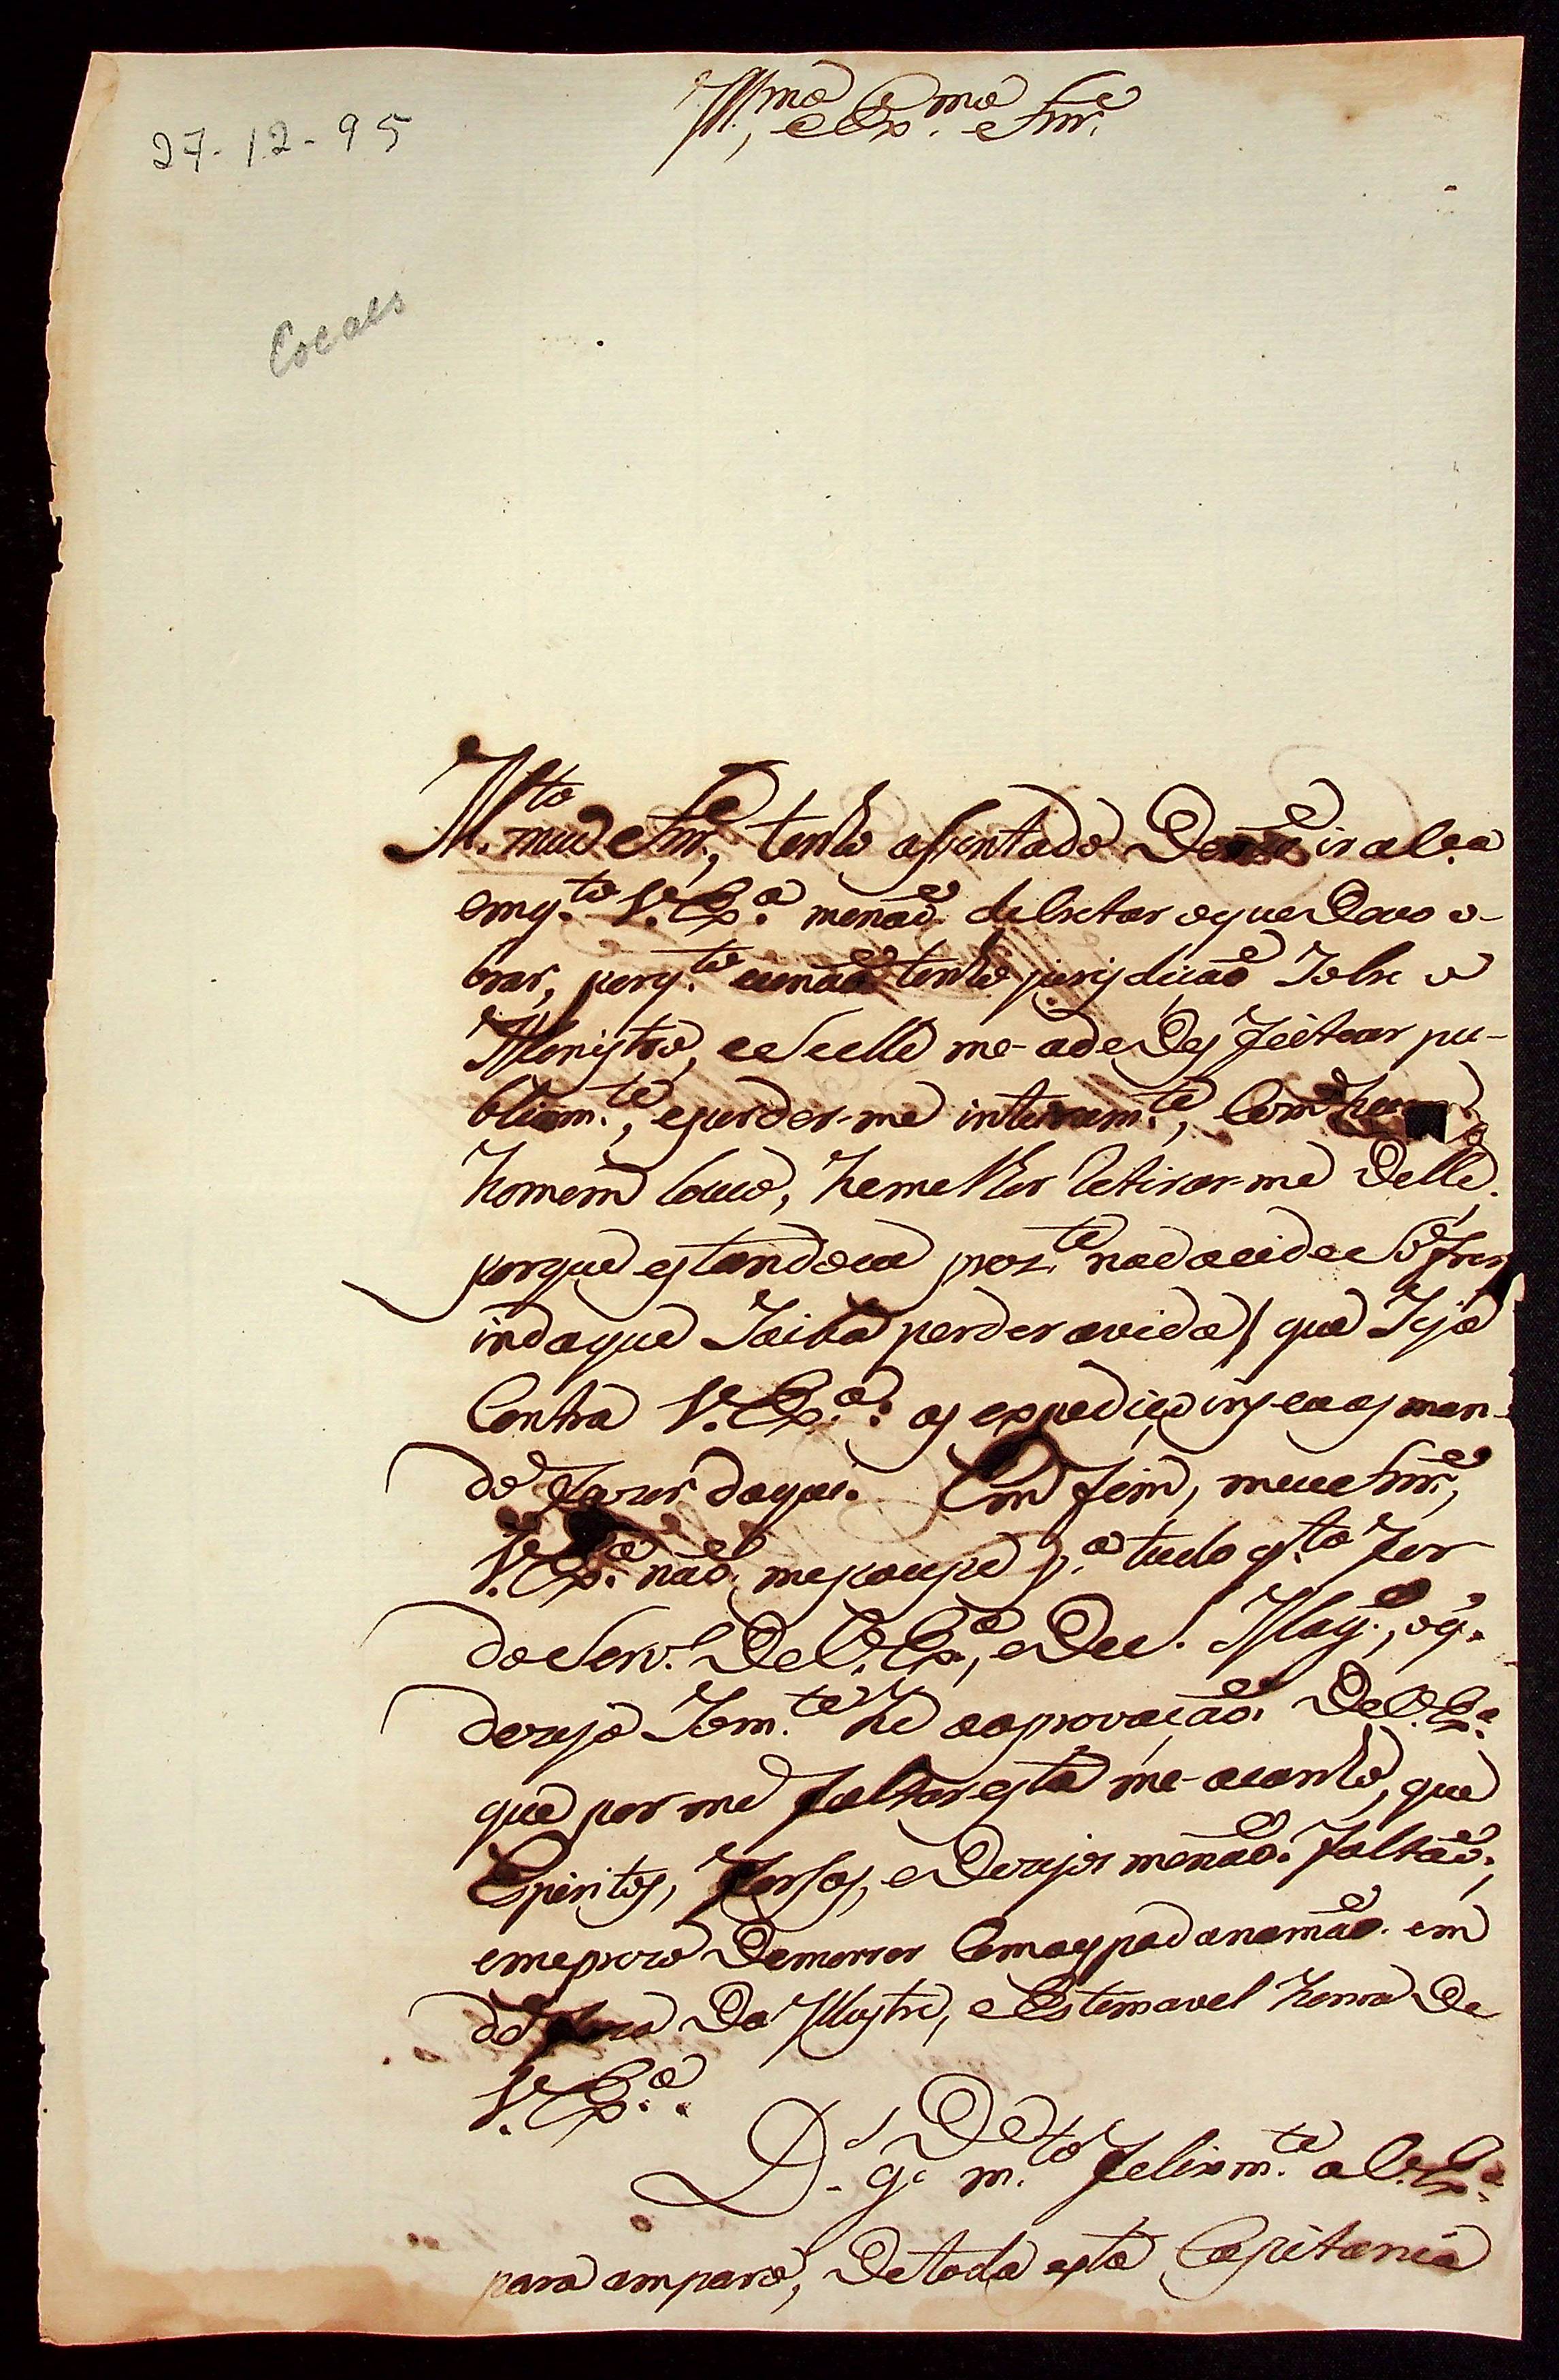 27-12-95
Ill.mo e Ex.mo Snr.
Cocaes
M.to meu Snr., tenho assentado de não ir a
emq.to V. Ex.a me não delretar o que devo o-
brar, porq.to eu não tenho jurisdicão sobre o
Menistro, e se elle me-ade desfeitear pu-
blicam.te, e perder-me inteiram.te, com hum
homem louco, he melhor retirar-me delle
porque estando eu prez.te nada eide sofrer
inda que saiba perder a vida / que seja
contra V. Ex.a: as expediçoins eu as man-
do fazer daqui. Em fim, meu Snr.,
V. Ex.a não me poupe p.a tudo q.to for
do Serv.o de V. Ex.a, e de S. Mag.e, o q.
dezejo som.te he a aprovação de V. Ex.a
que por me faltar esta me-acanho, que
Espiritos, forsas, e dezejos me não faltão,
e me prezo de morrer com a espada na mão em
defeza da Illustre, e Estemavel honra de
V. Ex.a
D.s g.e m.to felizm.te a V. Ex.a
para amparo, de toda esta Capitania